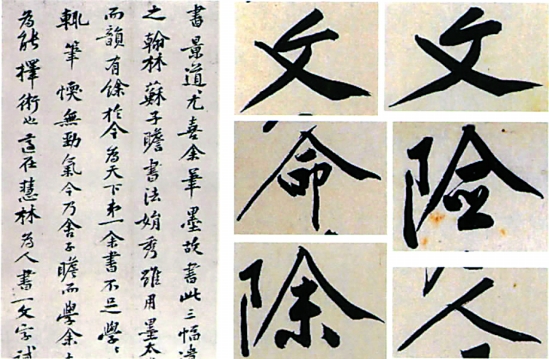 書景道尤喜余筆墨故書此三幅
之翰林蘇子瞻書法娟秀雖用墨太
而韻有餘於今為天下弟一余書不足學〻
輒筆愞無勁氣今乃舍子瞻而學余
為能擇術也適在慧林為人書一文字試
文
文
命
險
除
人